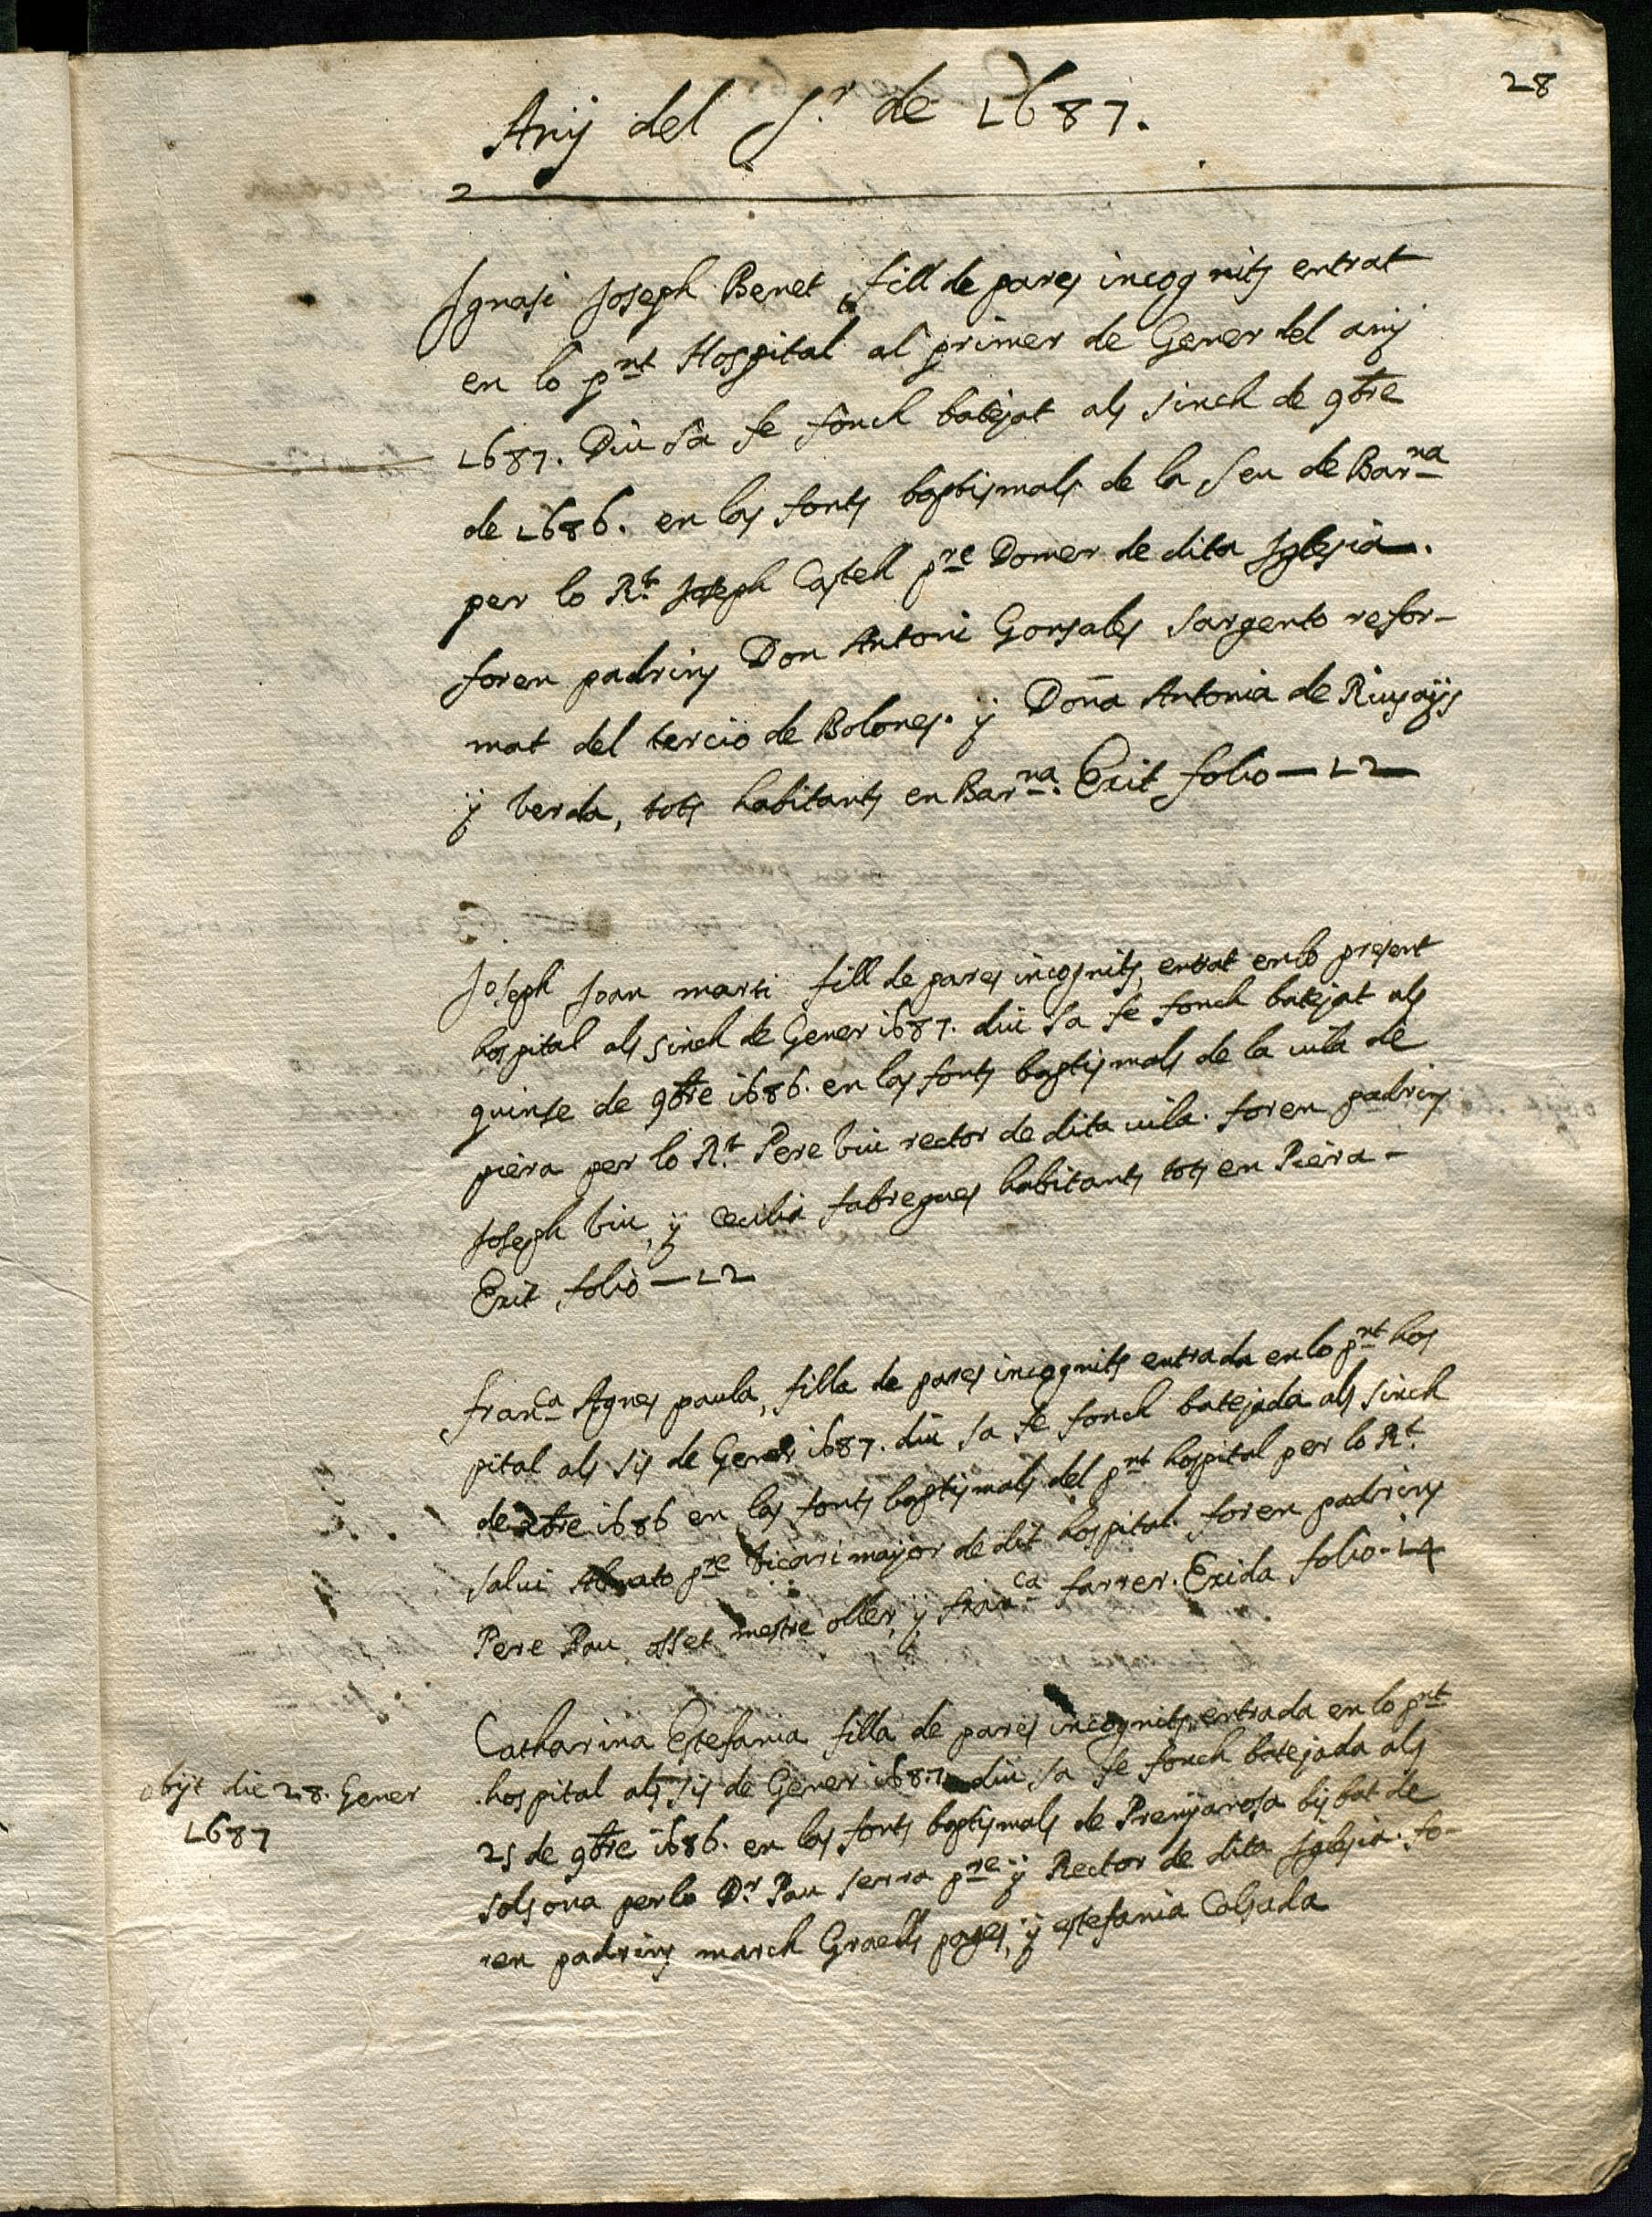 28
Any del S.r de 1687.
Ignasi Joseph Benet, fill de pares incognits entrat
en lo pnt Hospital al primer de Gener del any
1687. Diu sa fe fonch batejat als sinch de 9bre
de 1686. en las fonts baptismals de la Seu de Barna
per lo Rt. Joseph Castell pre Domer de dita Iglesia.
foren padrins Don Antoni Gonsales sargento refor-
mat del tercio de Bolones. y Doña Antonia de
y Verda, tots habitants en Barna. Exit folio — 12 —
Joseph Joan marti fill de pares incognits, entrat en lo present
hospital als sinch de Gener 1687. diu sa fe fonch batejat als
quinse de 9bre 1686. en las fonts baptismals de la vila de
piera per lo Rt. Pere Viu rector de dita vila. foren padrins
Joseph Viu, y Cecilia fabregues habitants tots en Piera –
Exit folio — 12
Franca Agnes paula, filla de pares incognits entrada en lo pnt hos
pital als sis de Gener 1687. diu sa fe fonch batejada als sinch
de 1686 en las fonts baptismals del pnt hospital per lo Rt.
Salvi pre Vicari major de dit hospital. foren padrins
Pere Pau osset mestre oller, y franca farrer. Exida folio - 14
Catharina Estefania filla de pares incognits, entrada en lo pnt
hospital als sis de Gener 1687. diu sa fe fonch batejada als
25 de 9bre 1686. en las fonts baptismals de Prenyanosa bisbat de
solsona per lo Dr. Pau serra pre y Rector de dita Iglesia. fo-
ren padrins march Graells pages, y estefania Calsada
obijt die 28. Gener
1687